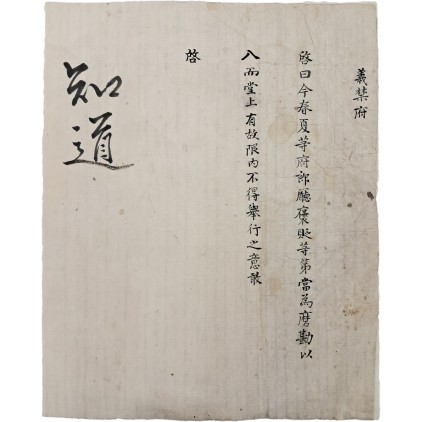 義禁府
啓曰今春夏等府郎廳褒貶等第當為磨勘以
入而堂上有故限內不得擧行之意敢
啓
知道